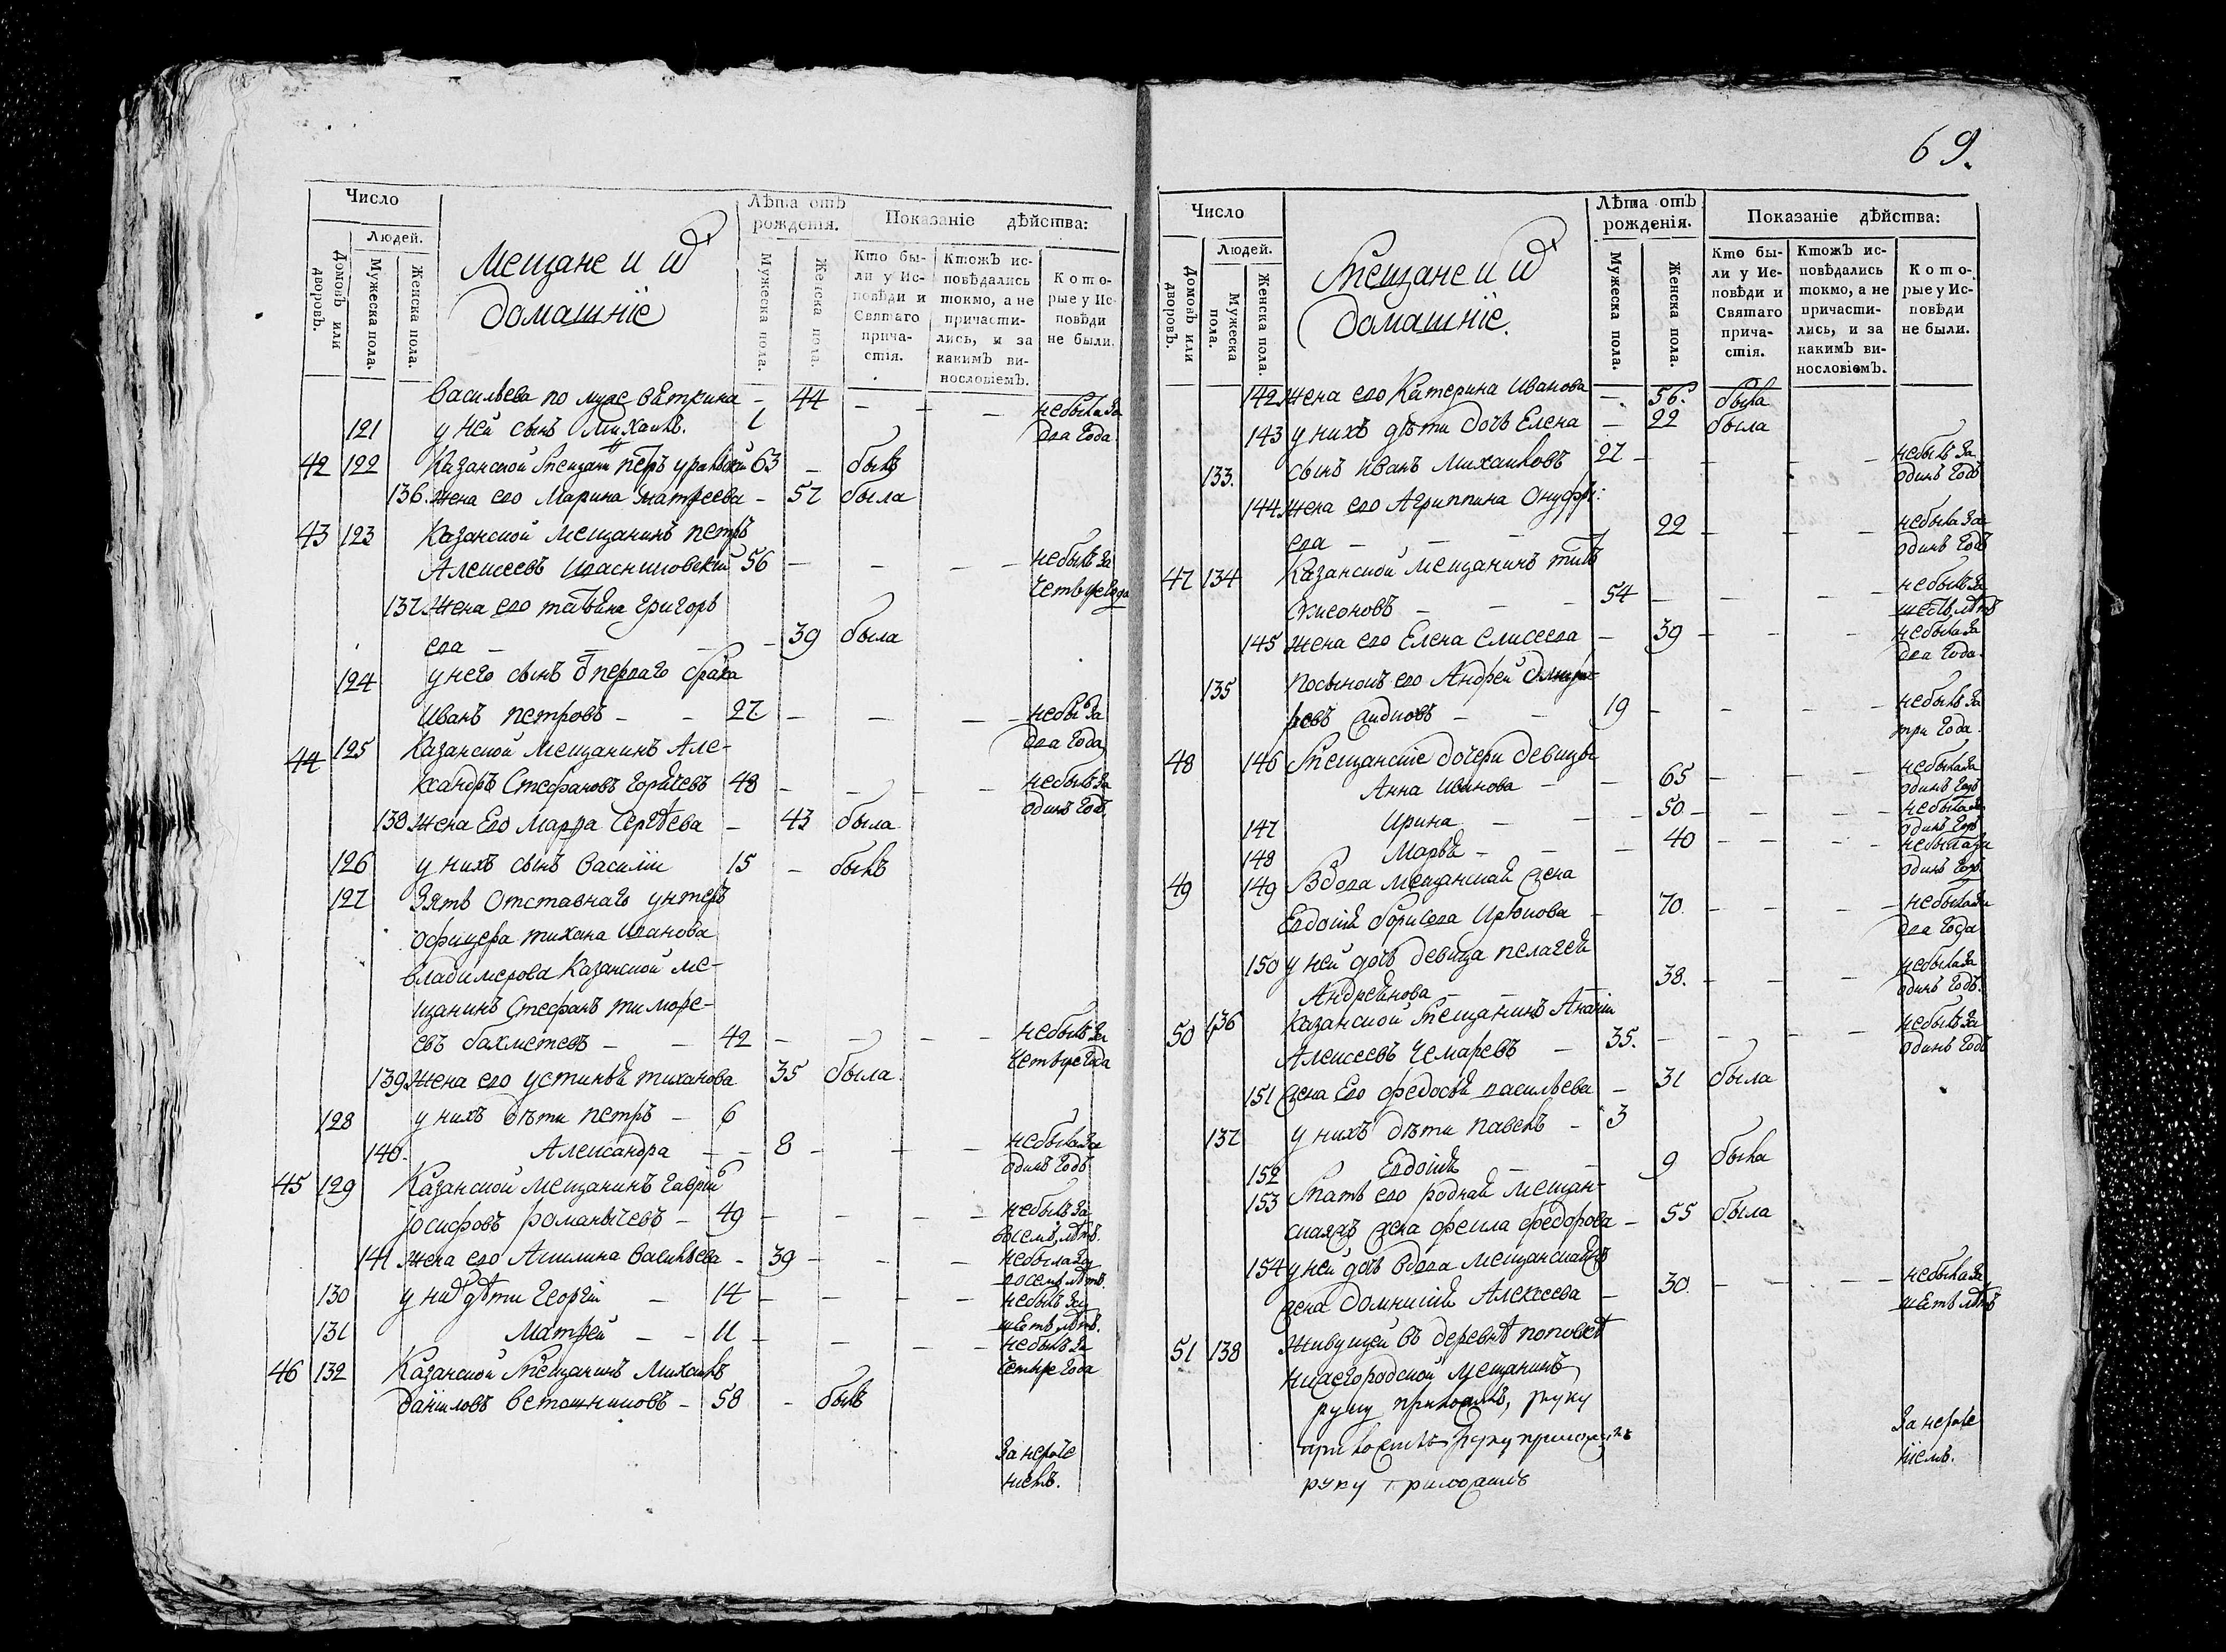 Число
Людей.
Домовъ или дворовъ.
Мужеска пола.
Женска пола.
Мещане и ихъ
домашніе
Лѣта отъ рожденія.
Мужеска пола.
Женска пола.
Показаніе дѣйства:
Кто были у Исповѣди и Святаго причастія.
Ктожъ исповѣдались токмо, а не причастились, и за какимъ винословіемъ.
Которые у Исповѣди не были.
Васильева по муже - 44 - - - не была за
121 у ней сынъ Михаилъ. 1 два года.
42 122 Казанской Мещани Петръ 63 - былъ
136. жена его Марина Матвеева - 57 была
43 123 Казанской мещанинъ петръ
Алексеевъ 56 - - - - не былъ за
четыре года
137. жена его татьяна григорь
ева - - - - 39 была
124 у него сынъ перваго брака
Иванъ петровъ - - 27 - - - - не бы за
два года
44 125 Казанской мещанинъ Але-
ксандръ Стефановъ 48 - - - - не былъ за
одинъ годъ
138 жена Его Марѳа Сергѣева - 43 была
126 у нихъ сынъ Василіи 15 - былъ
127 Зять Отставнаго унтеръ
офицера тихона Иванова
владимерова Казанской ме-
щанинъ Стефанъ тимофе-
евъ бахметевъ - - 42 - - - - не былъ за
четыре года
139. жена его устинья тиханова 35 была
128 у нихъ дѣти петръ - 6
140. Александра - - 8 - - - не была за
одинъ годъ
45 129 Казанской мещанинъ Гаврiи
Іосифовъ романычевъ - 49 - - - - не былъ за
восемь лѣтъ.
141 жена его Акилина Васильева - 39 - - - не была за
восемь лѣтъ.
130 у них дѣти Георгіи - 14 - - - - не былъ за
шесть лѣтъ.
131 Матвей - - 11 - - - - не былъ за
четыре года
46 132 Казанской Мещанинъ Михаилъ
даниловъ ветошниковъ - 58 - былъ
За нераче
ніемъ.
69.
Число
Людей.
Домовъ или дворовъ.
Мужеска пола.
Женска пола.
Мещане и ихъ
домашніе.
Лѣта отъ рожденія.
Мужеска пола.
Женска пола.
Показаніе дѣйства:
Кто были у Исповѣди и Святаго причастія.
Ктожъ исповѣдались токмо, а не причастились, и за какимъ винословіемъ.
Которые у Исповѣди не были.
142 жена его Катерина Иванова - 56. была
143 у нихъ дѣти дочь Елена - 22 была
133. сынъ Иванъ Михаиловъ 27 - - - - не былъ за
одинъ годъ
144 жена его Агриппина Онуфрі:
ева - - - - 22 - - - не была за
одинъ годъ
47 134 Казанской мещанинъ титъ
Симеоновъ - - - 54 - - - - не былъ за
шесть лѣтъ
145 жена его Елена елисеева - 39 - - - не была за
два года.
135 Посынокъ его Андрей
19 - - - - не былъ за
три года.
48 146 Мещанскіе дочери девицы
Анна Иванова - - 65 - - - не была за
одинъ годъ
147 Ирина - - - 50 - - - - не была за
одинъ годъ
148 Марья - - - 40 - - - - не была за
одинъ годъ
49 149 Вдова мещанская жена
Евдокия борисова - 70. - - - - не была за
два года
150 у ней дочь девица пелагея
Андреянова - - - 38. - - - не была за
одинъ годъ.
50 136 Казанской Мещанинъ
Алексеевъ Чемаревъ - 35. - - - - не былъ за
одинъ годъ
151 жена Его федосья васильева - 31 была
137 у нихъ дѣти павелъ - 3
152 Евдокия - - 9 была
153 Мать его родная мещан-
жена фекла федорова - 55 была
154 у ней дочь вдова мещанская
жена домникия Алексеева - 30. - - - - не была за
шесть лѣтъ
51 138 живущей въ деревнѣ поповкѣ
нижегородской мещанинъ
руку приложилъ, руку
руку
руку приложилъ
За нераче
ніемъ.